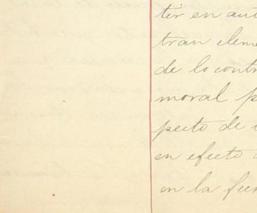 ter en aut
tran eleme
de lo contr
moral p
pecto de
en efecto
en la fue